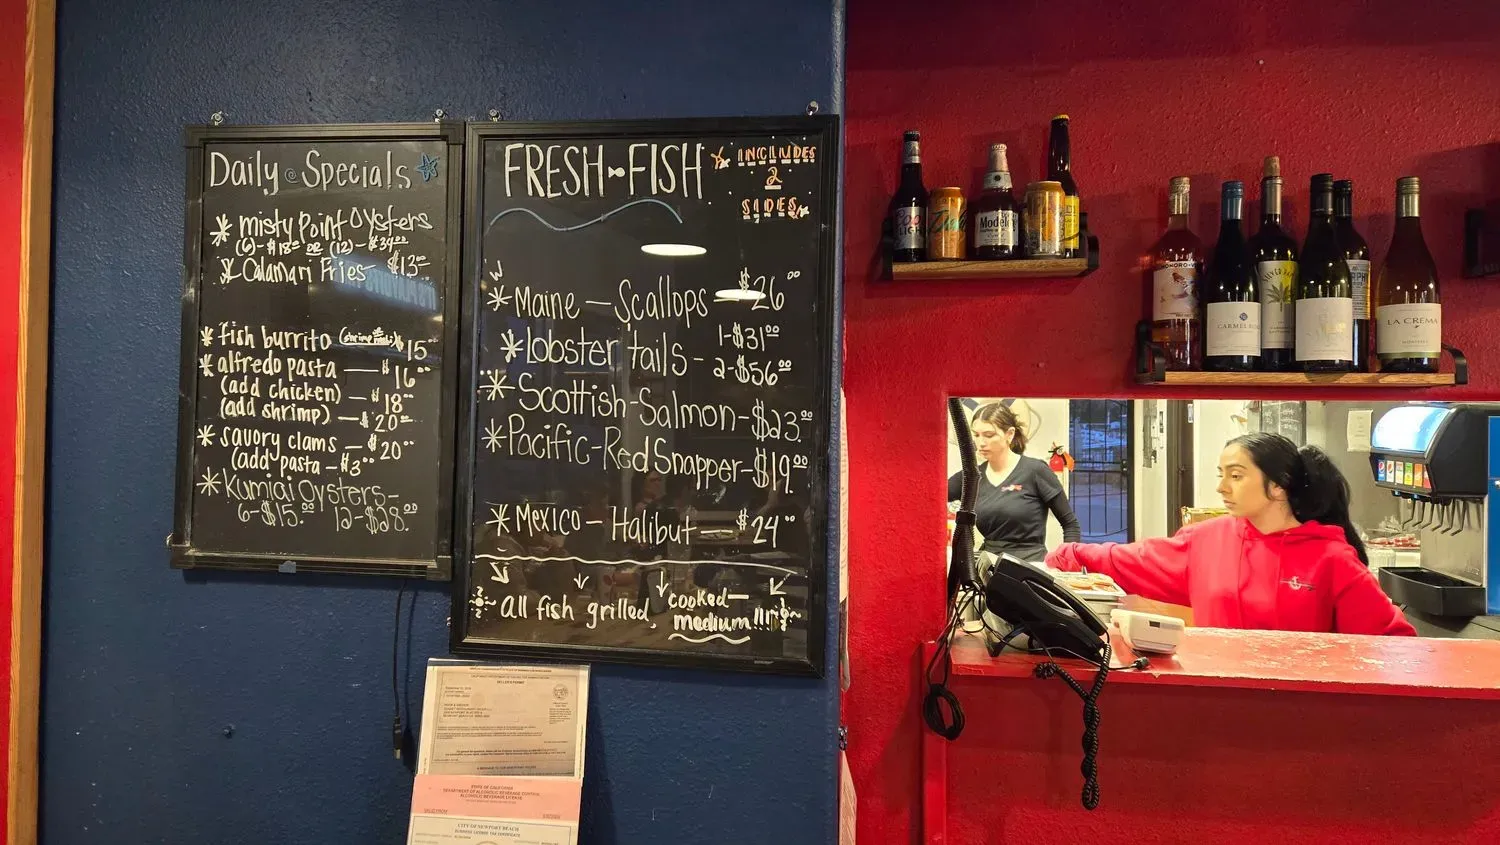 Daily Specials
* Misty Point Oysters
(6)-$18.00 or (12)-$34.00
* Calamari Fries - $13.00
* fish burrito $15.00
* alfredo pasta — $16.00
(add chicken) — $18.00
(add shrimp) — $20.00
* savory clams — $20.00
(add pasta - $3.00
* Kumiai Oysters -
6-$15.00 12-$28.00
FRESH FISH
* INCLUDES
2
SIDES
* Maine — Scallops — $26.00
* Lobster tails - 1-$31.00
2-$56.00
* Scottish-Salmon-$23.00
* Pacific-Red Snapper-$19.00
* Mexico — Halibut — $24.00
All fish grilled, cooked-
medium!!!
SELLER'S PERMIT
STATE OF CALIFORNIA
DEPARTMENT OF ALCOHOLIC BEVERAGE CONTROL
ALCOHOLIC BEVERAGE LICENSE
CITY OF NEWPORT BEACH
BUSINESS LICENSE TAX CERTIFICATE
LIGHT
Modelo
LA CREMA